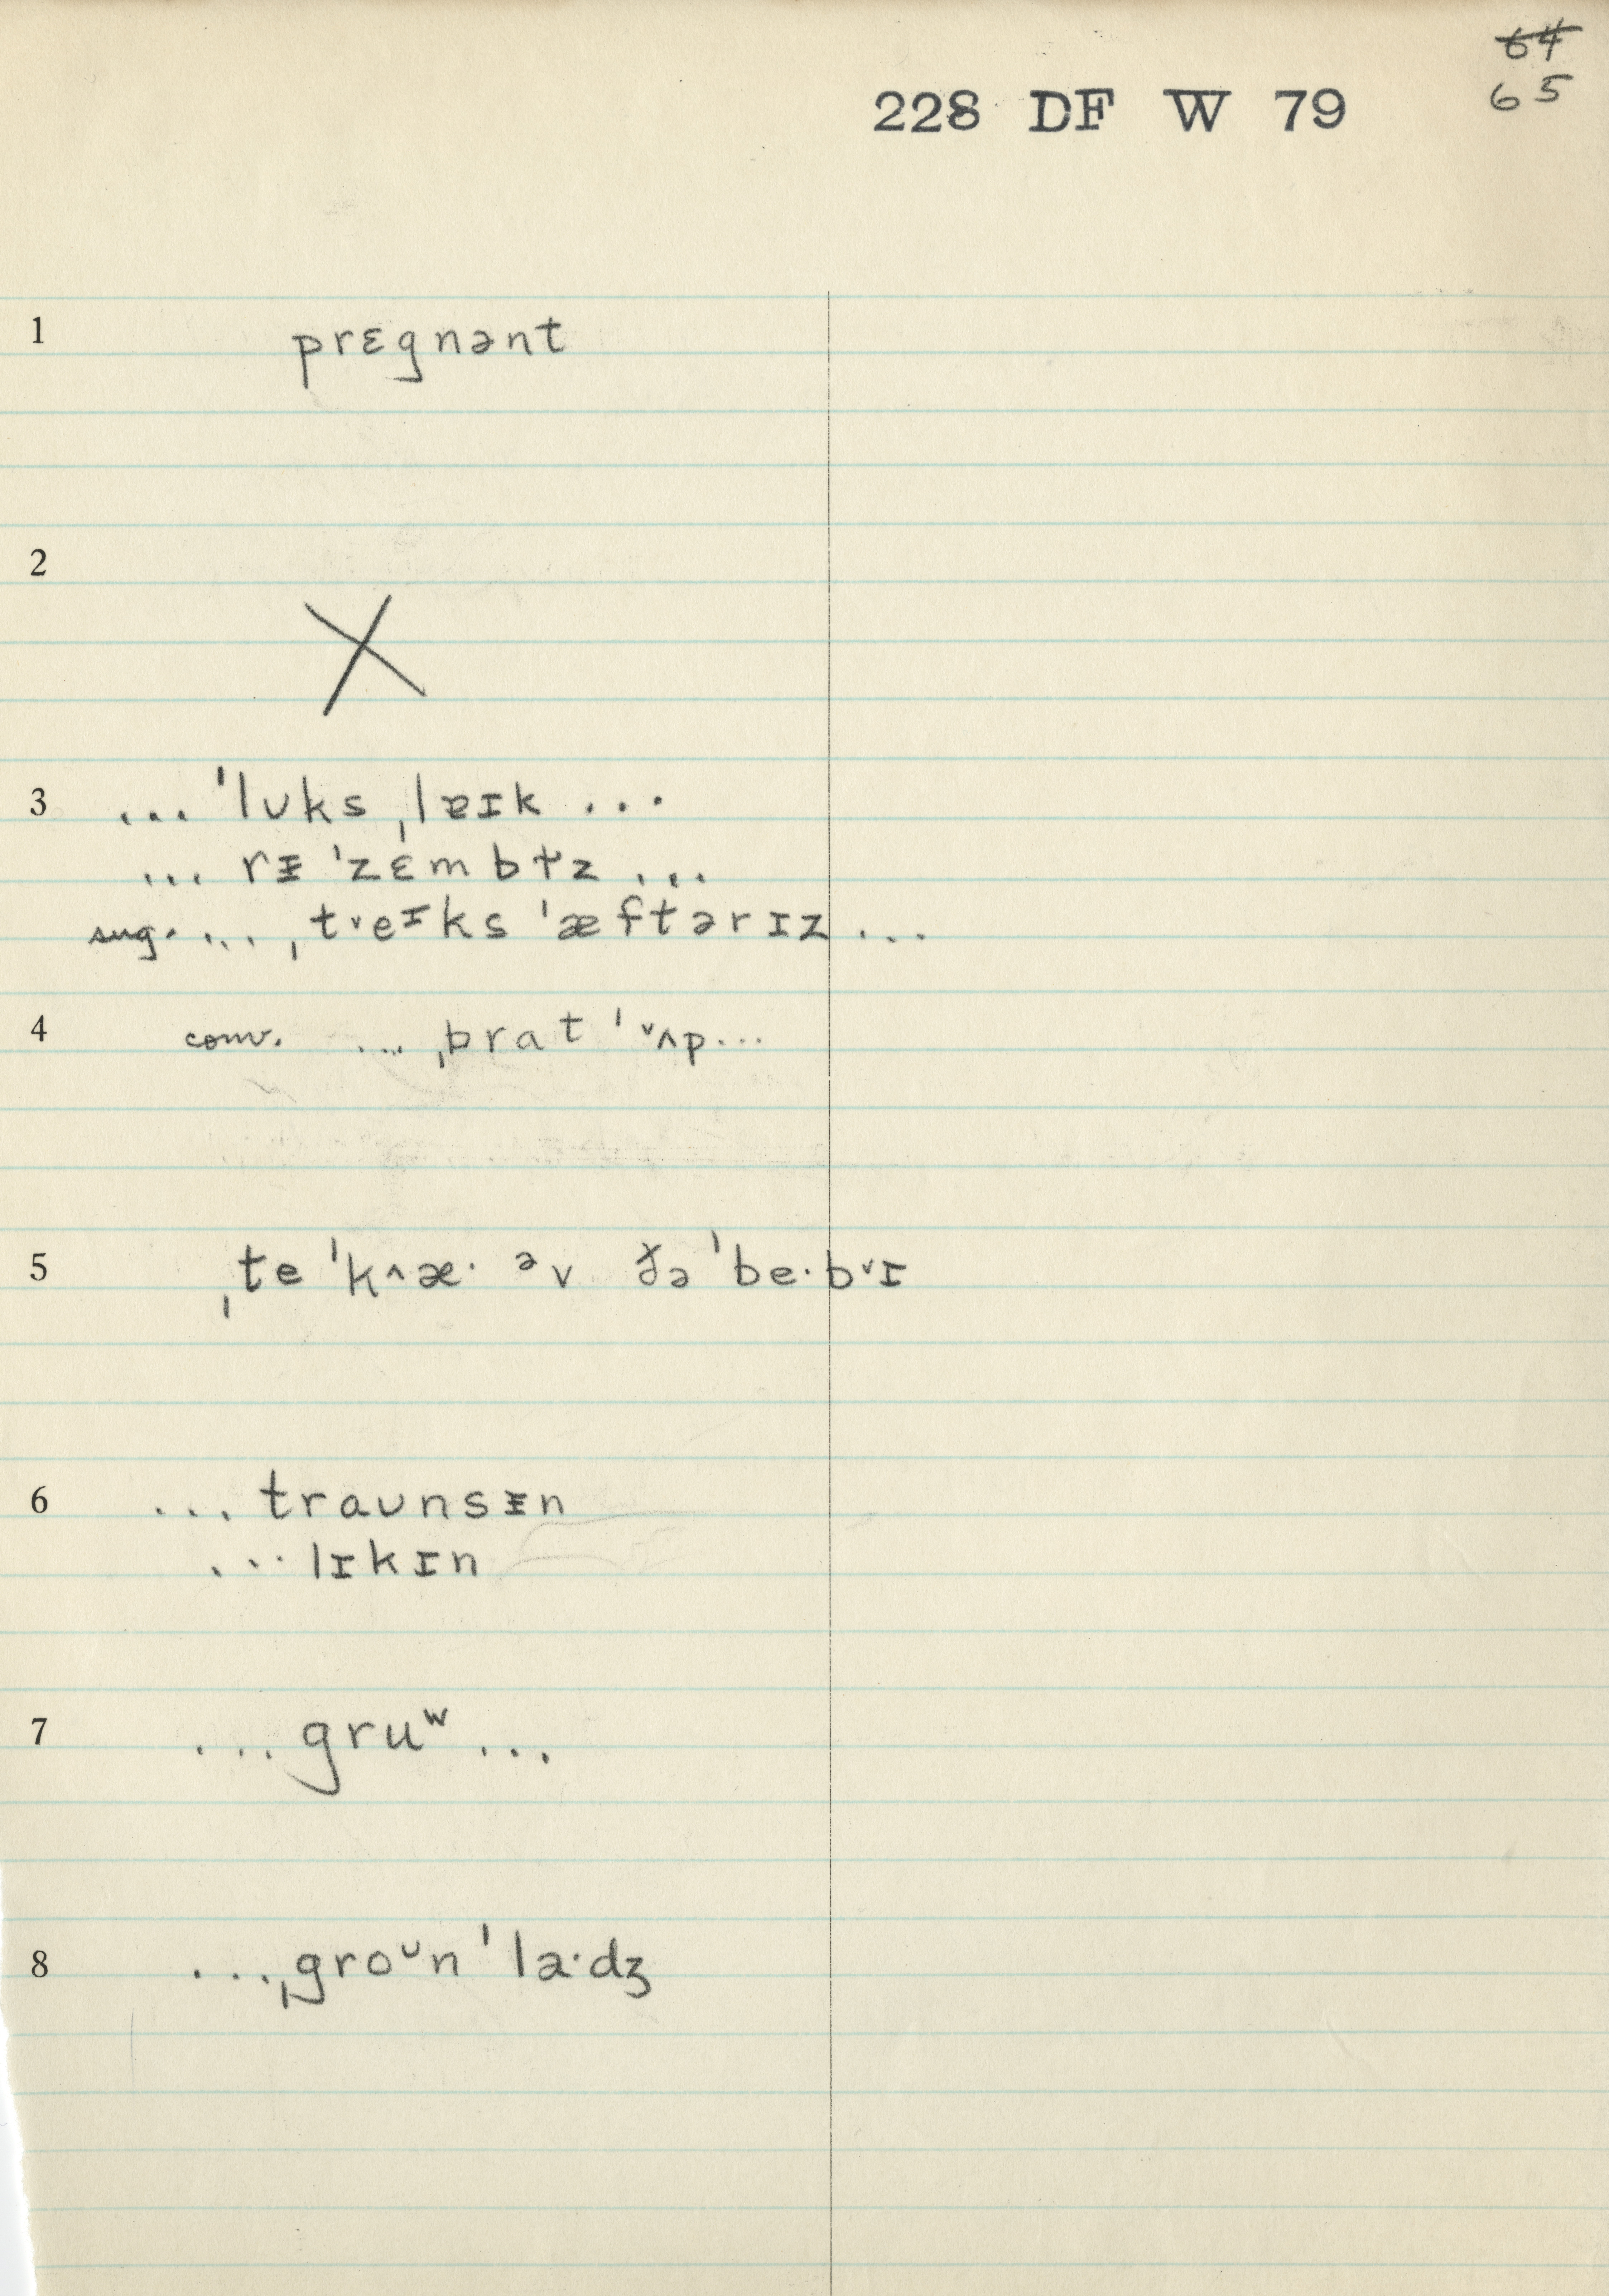 ~~64~~
228 DF W 79
65
1 prɛgnənt
2 X
3 ... ˈlʊks ˌlɐɪk ...
... rᵻ ˈzɛm bɫz ...
sug. ... ˌt˅eɪks ˈæftərɪz ...
4 conv. ... ˌbrat ˈ˅ʌp...
5 ˌte ˈk^æ· əv ðə ˈbe·b˅ɪ
6 ... traʊnsᵻn
... lɪkɪn
7 ... gruʷ ...
8 ... ˌgroᶷn ˈla·dʒ